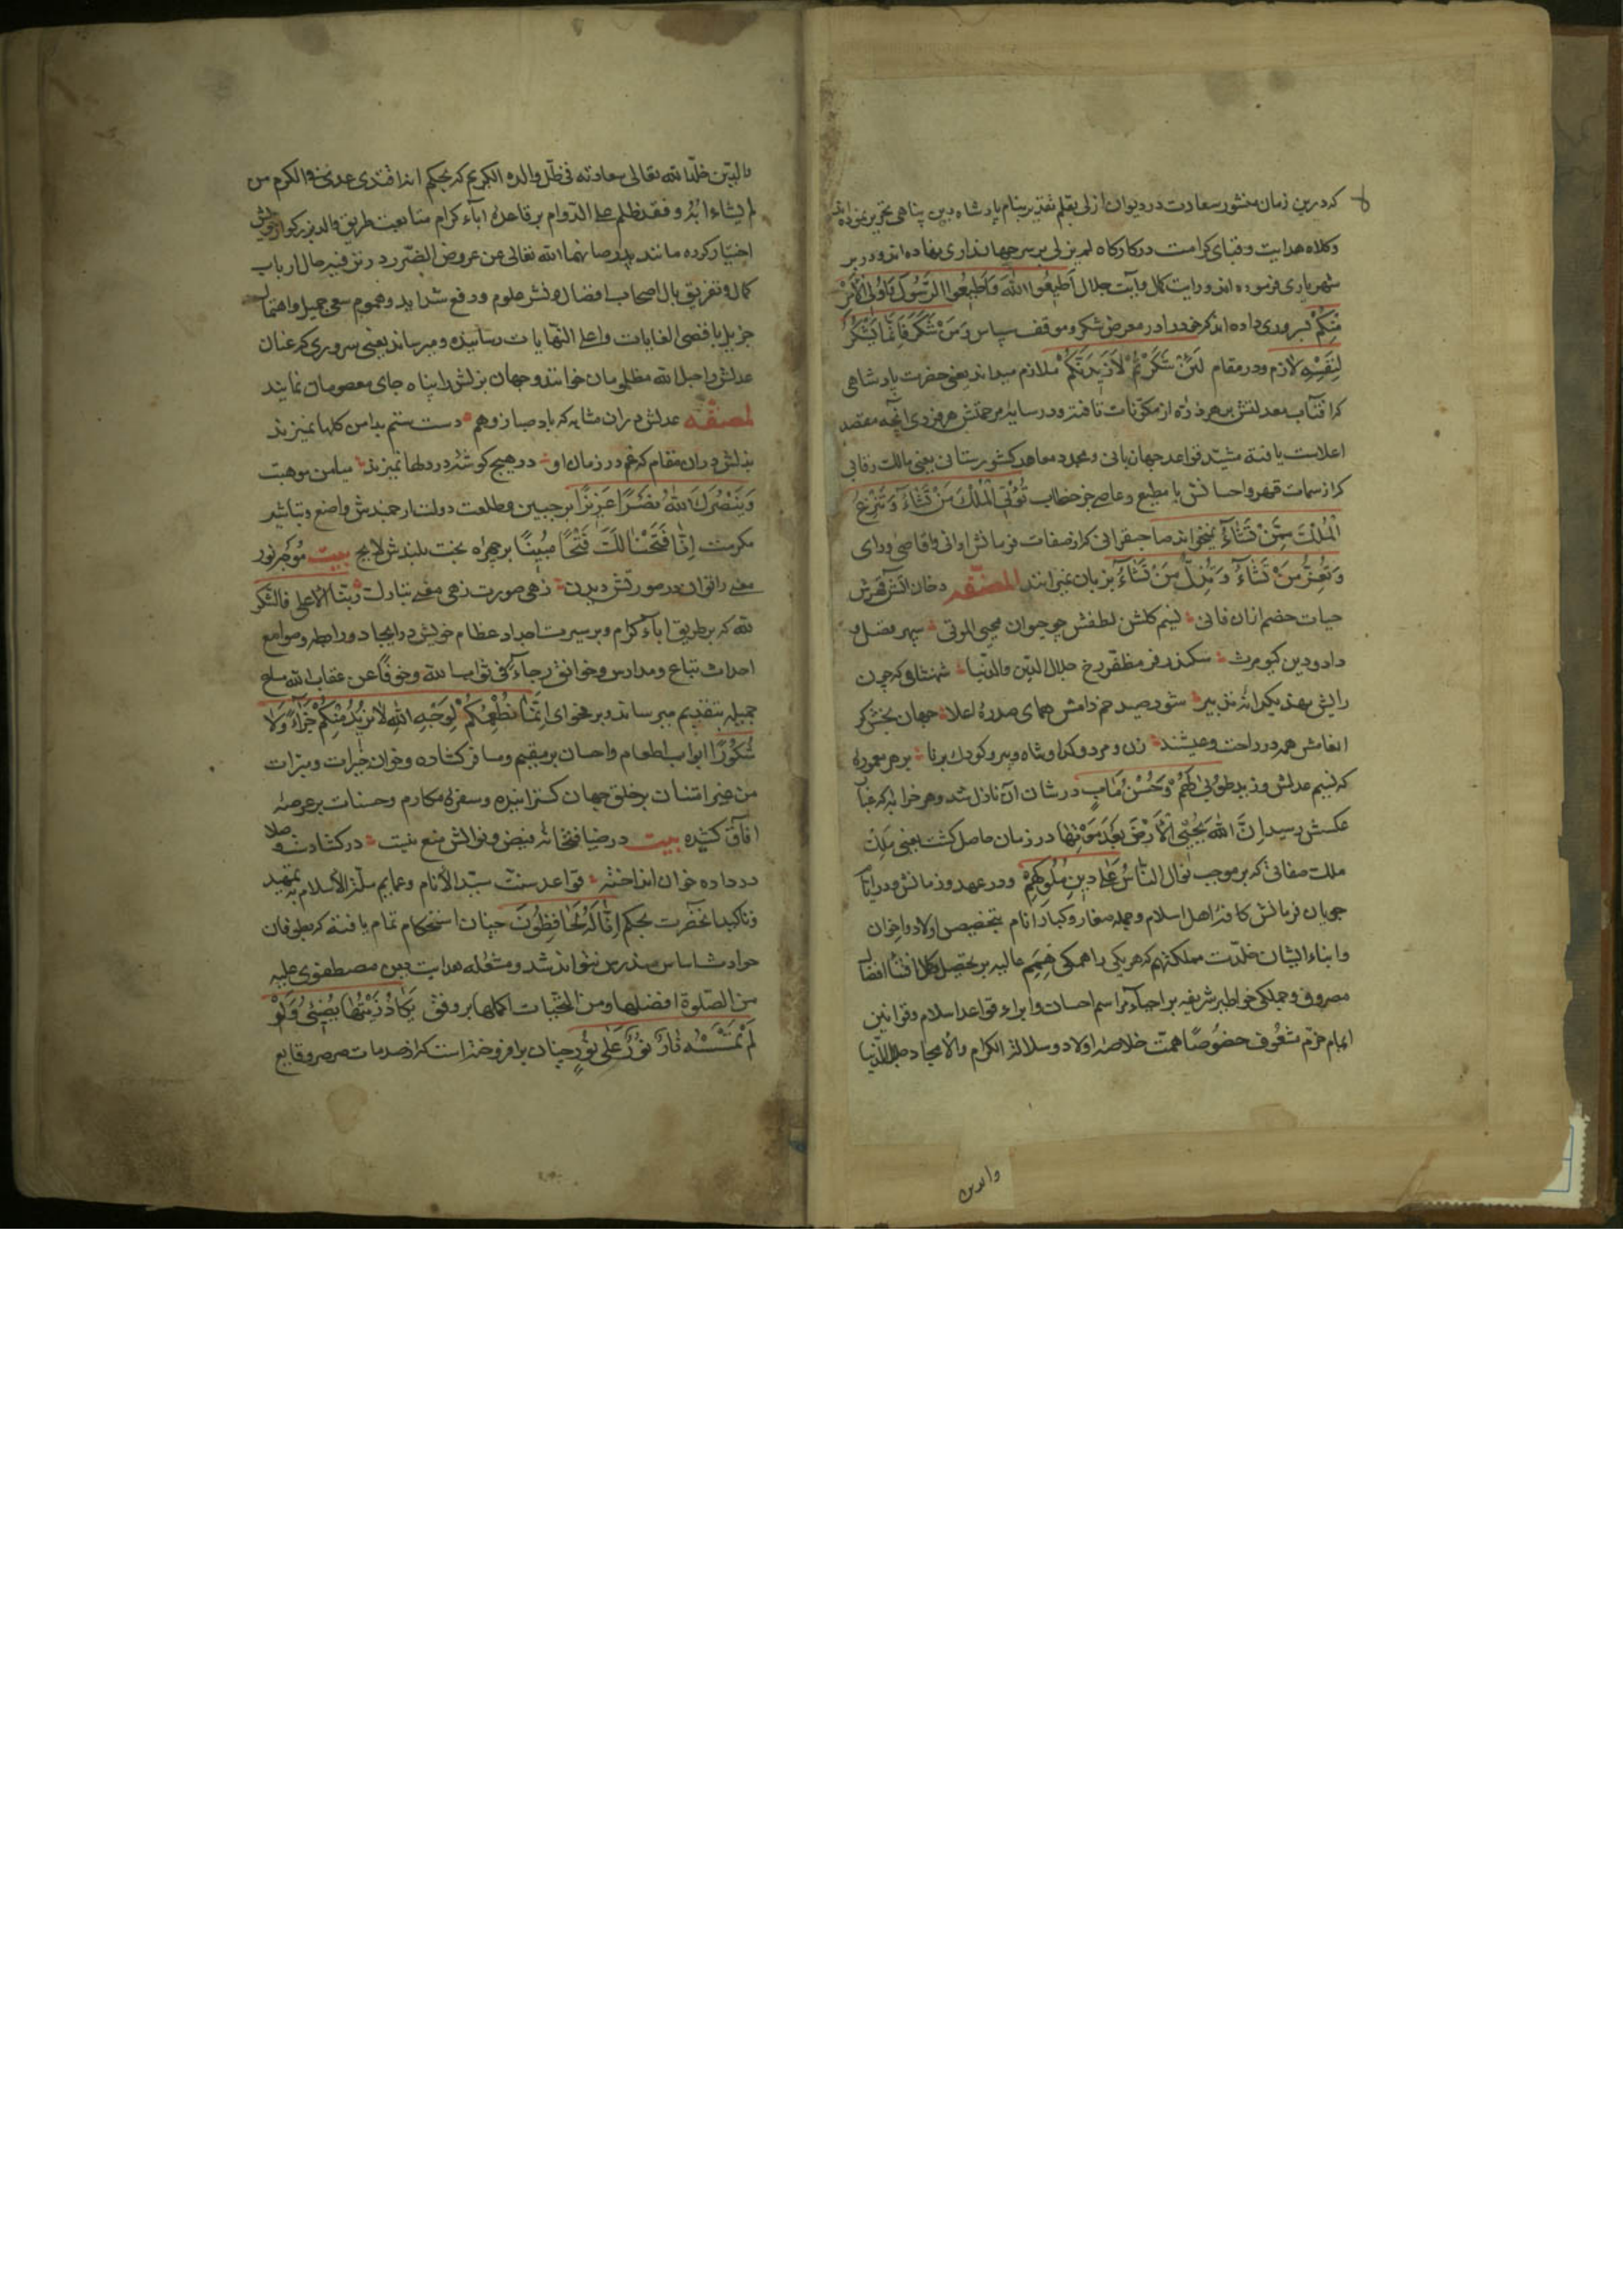 که درین زمان منشور سعادت در دیوان ازلی بقلم تقدیر بنام پادشاه دین پناهی تحریر نموده‌اند
وکلاه هدایت وقبای کرامت در کارکاه لم یزلی بر سر جهانداری نهاده اند و در بر
شهریاری فرسوده اند ورایت کمال وآیت جلال اَطِیعُوا اللّهَ وَاَطِیعُوا الرَّسُولَ وَاُولِی الْاَمْرِ
مِنکُمْ بسروری داده اند که خود را در معرض شکر وموقف سپاس وَمَنْ شَکَرَ فَاِنَّمَا یَشْکُرُ
لِنَفْسِهِ لازم ودر مقام لَئِنْ شَکَرْتُمْ لَاَزِیدَنَّکُمْ ملازم میداند یعنی حضرت پادشاهی
که آفتاب معدلتش بر هر ذره از مکوّنات تافته ودر سایهٔ مرحمتش هر فردی انچه مقصد
اعلاست یافته مشیّد قواعد جهان بانی وممهد معاهد کشورستانی یعنی مالک رقابی
که از سمات قهر واحسانش با مطیع وعاصی جز خطاب تُؤْتِی الْمُلْکَ مَنْ تَشَاءُ وَتَنْزِعُ
الْمُلْکَ مِمَّنْ تَشَاءُ نمیخواند صاحبقرانی که از صفات فرمانش ادانی واقاصی ورای
وَتُعِزُّ مَنْ تَشَاءُ وَتُذِلُّ مَنْ تَشَاءُ بزبان نمیرانند المصنّفه دخان آتش قهرش
حیات خصم ازان فانی نسیم کلشن لطفش چو حیوان محیی الموتی سپهر فضل و
داد ودین کیومرث سکندر فر مظفر رخ جلال الدین والدنیا شهنشاهی که چون
رایش نهد یکرانه تدبیر شود صید خم دامش همای سدره اعلا جهان بخشی که
انعامش همه در راحت وعیشند زن ومرد وکدا وشاه وپیر وکودک برنا بر هر معموره
که نسیم عدلش وزید طُوبیٰ لَهُمْ وَحُسْنُ مَآبٍ در شان آن نازل شد وهر خرابه که
عکسش رسید اِنَّ اللّهَ یُحْیِی الْاَرْضَ بَعْدَ مَوْتِهَا در زمان حاصل کشت یعنی ملک
ملک صفاتی که بر موجب نوال النَّاسُ عَلیٰ دِینِ مُلُوکِهِمْ ودر عهد وزمانش ودر ایام
جریان فرمانش کافه اهل اسلام وجمله صغار وکبار انام بتخصیص اولاد واخوان
وابناء ایشان خلّدت مملکتهم که هریکی را همکی هِمَم عالیه بر تحصیل
مصروف وجملکی خواطر شریفه بر احیاء مراسم احسان وابراء قواعد اسلام وقوانین
ایمام خرّم شعوف خصُوصًا همت خلاصهٔ اولاد وسلالة الکرام والامجاد جلال الدنیا
والدین
والدین خلّد الله تعالی سعادته فی ظلّ والده الکریم که بحکم
لم یشاء ابهُ وفقد ظلم علی الدوام بر قاعدهٔ آباء کرام متابعت طریق والد بزرکوار خویش
اختیار کرده مانند پدر صانهما الله تعالی عن عروض الضّرر در ترفیه حال ارباب
کمال وتفریق بال اصحاب افضال ونشر علوم ودفع شداید وهموم سعی جمیل واهتمام
جزیل باقصی الغایات واعلی النهایات رسانیده ومیرساند یعنی سروری که عنان
عدلش را حبل الله مظلومان خوانند وجهان بزلش را پناه جای معصومان نمایند
لمصنفه عدلش بران مثابه که باد صبا زوهم دست ستم بدامن کلها نمیزند
بذلش دران مقام که غم در زمان او در هیچ کوشه در دلها نمیزند میامن موهبت
وَیَنْصُرَکَ اللّهُ نَصْرًا عَزِیزًا بر جبین وطلعت دولت ارجمندش واضح وتباشیر
مکرمت اِنَّا فَتَحْنَا لَکَ فَتْحًا مُبِینًا بر چهرهٔ بخت بلندش لایح بیت
معنی را توان در صورتش دیدن زهی صورت زهی معنی تبارک ربّنا الاعلی فالشکر
لله که بر طریق اباء کرام وبر سیرت اجداد عظام خویش در ایجاد
احداث بقاع ومدارس وخوانق رجاءً فی ثواب الله وخوفًا عن عقاب الله
جمیله بتقدیم میرساند وبر فحوای اِنَّمَا نُطْعِمُکُمْ لِوَجْهِ اللّهِ لَا نُرِیدُ مِنْکُمْ جَزَآءً وَلَا
شُکُورًا ابواب اطعام واحسان بر مقیم ومسافر کشاده وخوان خیرات ومبرات
من غیر امتنان بر خلق جهان کسترانیده وسفرهٔ مکارم وحسنات بر عرصهٔ
آفاق کشیده بیت در ضیافتخانهٔ فیض نوالش منع نیست در کشادست وصلا
در داده خوان انداخته قواعد سنّت سیّد الأنام وعمایم ملّة الأسلام به تمهید
وتاکید آنحضرت بحکم اِنَّا لَهُ لَحَافِظُونَ چنان استحکام تمام یافته که بطوفان
حوادث اساس مندرس نتواند شد ومشعله هدایت دین مصطفوی علیه
من الصّلوة افضلها ومن التحیّات اکملها بر وفق یَکَادُ زَیْتُهَا یُضِیءُ وَلَوْ
لَمْ تَمْسَسْهُ نَارٌ نُورٌ عَلَی نُورٍ چنان برافروخته است که از صدمات صرصر وقایع